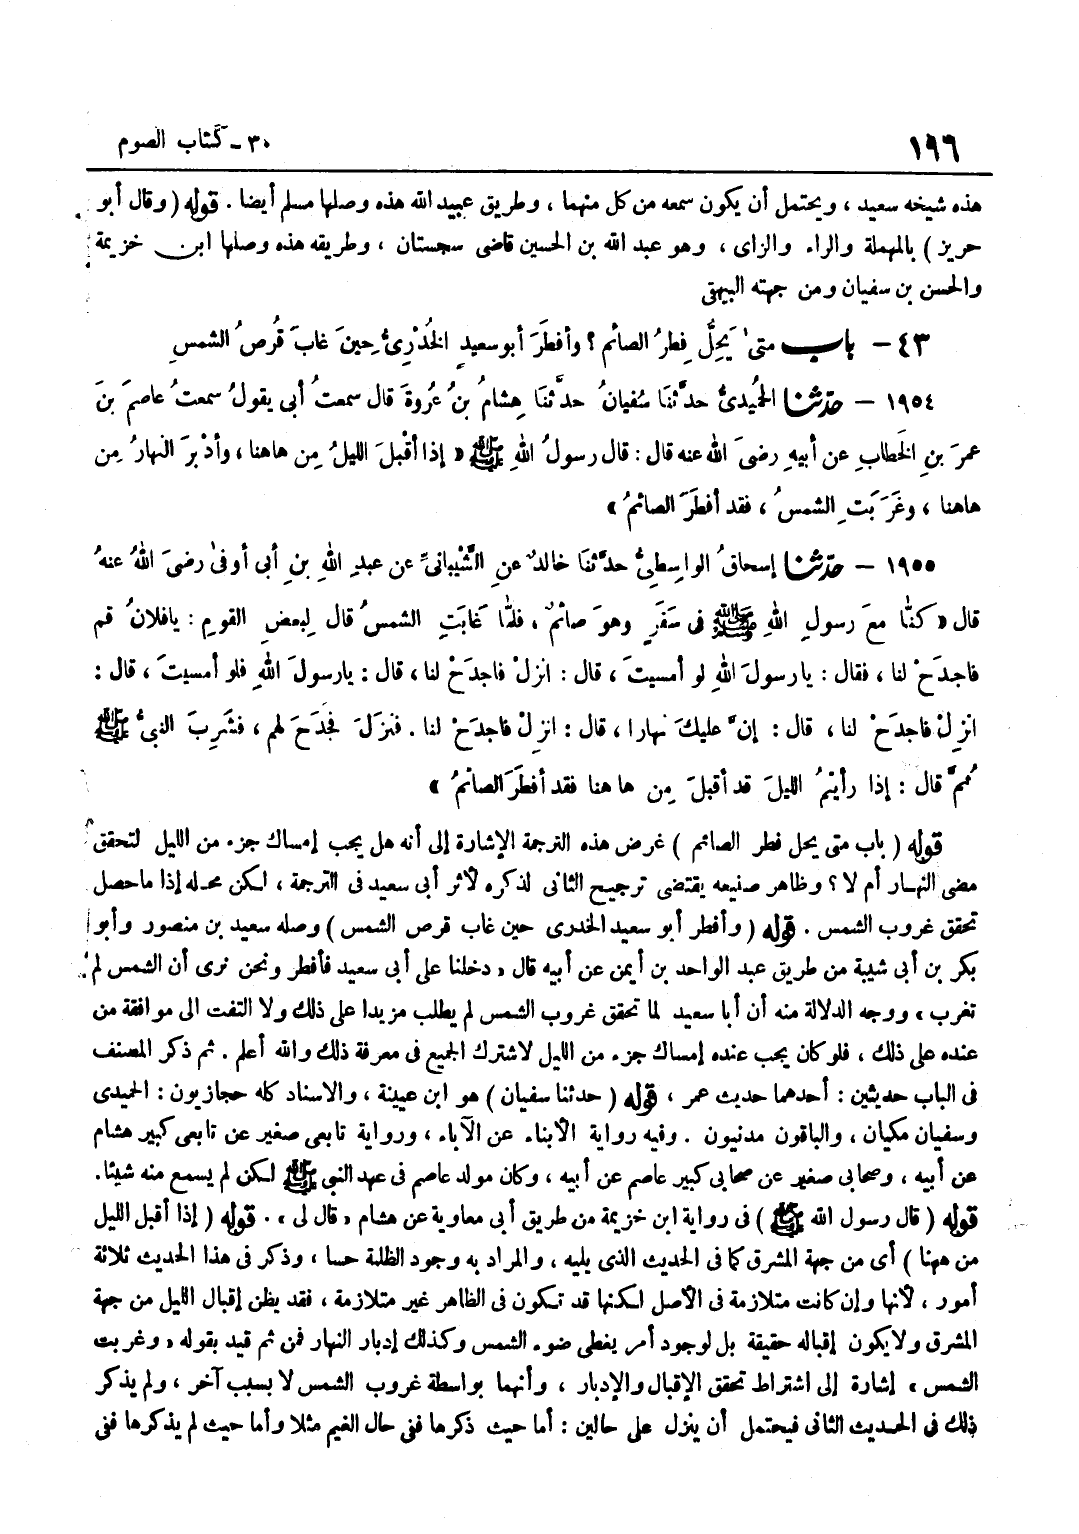 ١٩٦ ٣٠ - كتاب الصوم
هذه شيخه سعيد ، ويحتمل أن يكون سمعه من كل منهما ، وطريق عبيد الله هذه وصلها مسلم أيضا . قوله ( وقال أبو
حريز ) بالمهملة والراء والزاى ، وهو عبد الله بن الحسين قاضى سجستان ، وطريقه هذه وصلها ابن خزيمة
والحسن بن سفيان ومن جهته البيهقى
٤٣ - باب متىٰ يَحِلُّ فِطرُ الصائم ؟ وأفطَرَ أبو سعيدٍ الخُدْرِىُّ حِينَ غابَ قُرصُ الشمسِ
١٩٥٤ - حدّثنا الحُميدىُّ حدَّثنَا سُفيانُ حدَّثنَا هِشامُ بنُ عُروةَ قال سمعتُ أبى يقولُ سمعتُ عاصمَ بنَ
عمرَ بنِ الخَطابِ عن أبيهِ رضىَ اللهُ عنه قال : قال رسولُ اللهِ ﷺ « إذا أقبَلَ الليلُ مِن هاهنا ، وأدْبرَ النهارُ مِن
هاهنا ، وغَرَبَتِ الشمسُ ، فقد أفطَرَ الصائمُ »
١٩٥٥ - حدّثنا إسحاقُ الواسِطىُّ حدَّثنَا خالدٌ عنِ الشَّيبانىِّ عن عبدِ اللهِ بنِ أبى أوفىٰ رضىَ اللهُ عنهُ
قال « كنَّا معَ رسولِ اللهِ ﷺ فى سَفَرٍ وهوَ صائمٌ ، فلمَّا غابَتِ الشمسُ قال لِبعضِ القومِ : يافلانُ قم
فاجدَحْ لنا ، فقال : يا رسولَ اللهِ لو أمسيتَ ، قال : انزلْ فاجدَحْ لنا ، قال : يارسولَ اللهِ فلو أمسيتَ ، قال :
انزِلْ فاجدَحْ لنا ، قال : إنَّ عليكَ نهارا ، قال : انزِلْ فاجدَحْ لنا . فنزَلَ فجدَحَ لهم ، فشَرِبَ النبىُّ ﷺ
ثمَّ قال : إذا رأيتمُ الليلَ قد أقبلَ مِن ها هنا فقد أفطَرَ الصائمُ »
قوله ( باب متى يحل فطر الصائم ) غرض هذه الترجمة الإشارة إلى أنه هل يجب إمساك جزء من الليل لتحقق
مضى النهار أم لا ؟ وظاهر صنيعه يقتضى ترجيح الثانى لذكره لأثر أبى سعيد فى الترجمة ، لكن محله إذا ما حصل
تحقق غروب الشمس . قوله ( وأفطر أبو سعيد الخدرى حين غاب قرص الشمس ) وصله سعيد بن منصور وأبو
بكر بن أبى شيبة من طريق عبد الواحد بن أيمن عن أبيه قال « دخلنا على أبى سعيد فأفطر ونحن نرى أن الشمس لم
تغرب » ووجه الدلالة منه أن أبا سعيد لما تحقق غروب الشمس لم يطلب مزيدا على ذلك ولا التفت الى موافقة من
عنده على ذلك ، فلو كان يجب عنده إمساك جزء من الليل لاشترك الجميع فى معرفة ذلك والله أعلم . ثم ذكر المصنف
فى الباب حديثين : أحدهما حديث عمر ، قوله ( حدثنا سفيان ) هو ابن عيينة ، والاسناد كله حجازيون : الحميدى
وسفيان مكيان ، والباقون مدنيون . وفيه رواية الأبناء عن الآباء ، ورواية تابعى صغير عن تابعى كبير هشام
عن أبيه ، وصحابى صغير عن صحابى كبير عاصم عن أبيه ، وكان مولد عاصم فى عهد النبى ﷺ لكن لم يسمع منه شيئا .
قوله ( قال رسول الله ﷺ ) فى رواية ابن خزيمة من طريق أبى معاوية عن هشام « قال لى » . قوله ( إذا أقبل الليل
من ههنا ) أى من جهة المشرق كما فى الحديث الذى يليه ، والمراد به وجود الظلمة حسا ، وذكر فى هذا الحديث ثلاثة
أمور ، لأنها وإن كانت متلازمة فى الأصل لكنها قد تكون فى الظاهر غير متلازمة ، فقد يظن إقبال الليل من جهة
المشرق ولا يكون إقباله حقيقة بل لوجود أمر يغطى ضوء الشمس وكذلك إدبار النهار فمن ثم قيد بقوله « وغربت
الشمس » إشارة إلى اشتراط تحقق الإقبال والإدبار ، وأنهما بواسطة غروب الشمس لا بسبب آخر ، ولم يذكر
ذلك فى الحديث الثانى فيحتمل أن ينزل على حالين : أما حيث ذكرها ففى حال الغيم مثلا وأما حيث لم يذكرها ففى